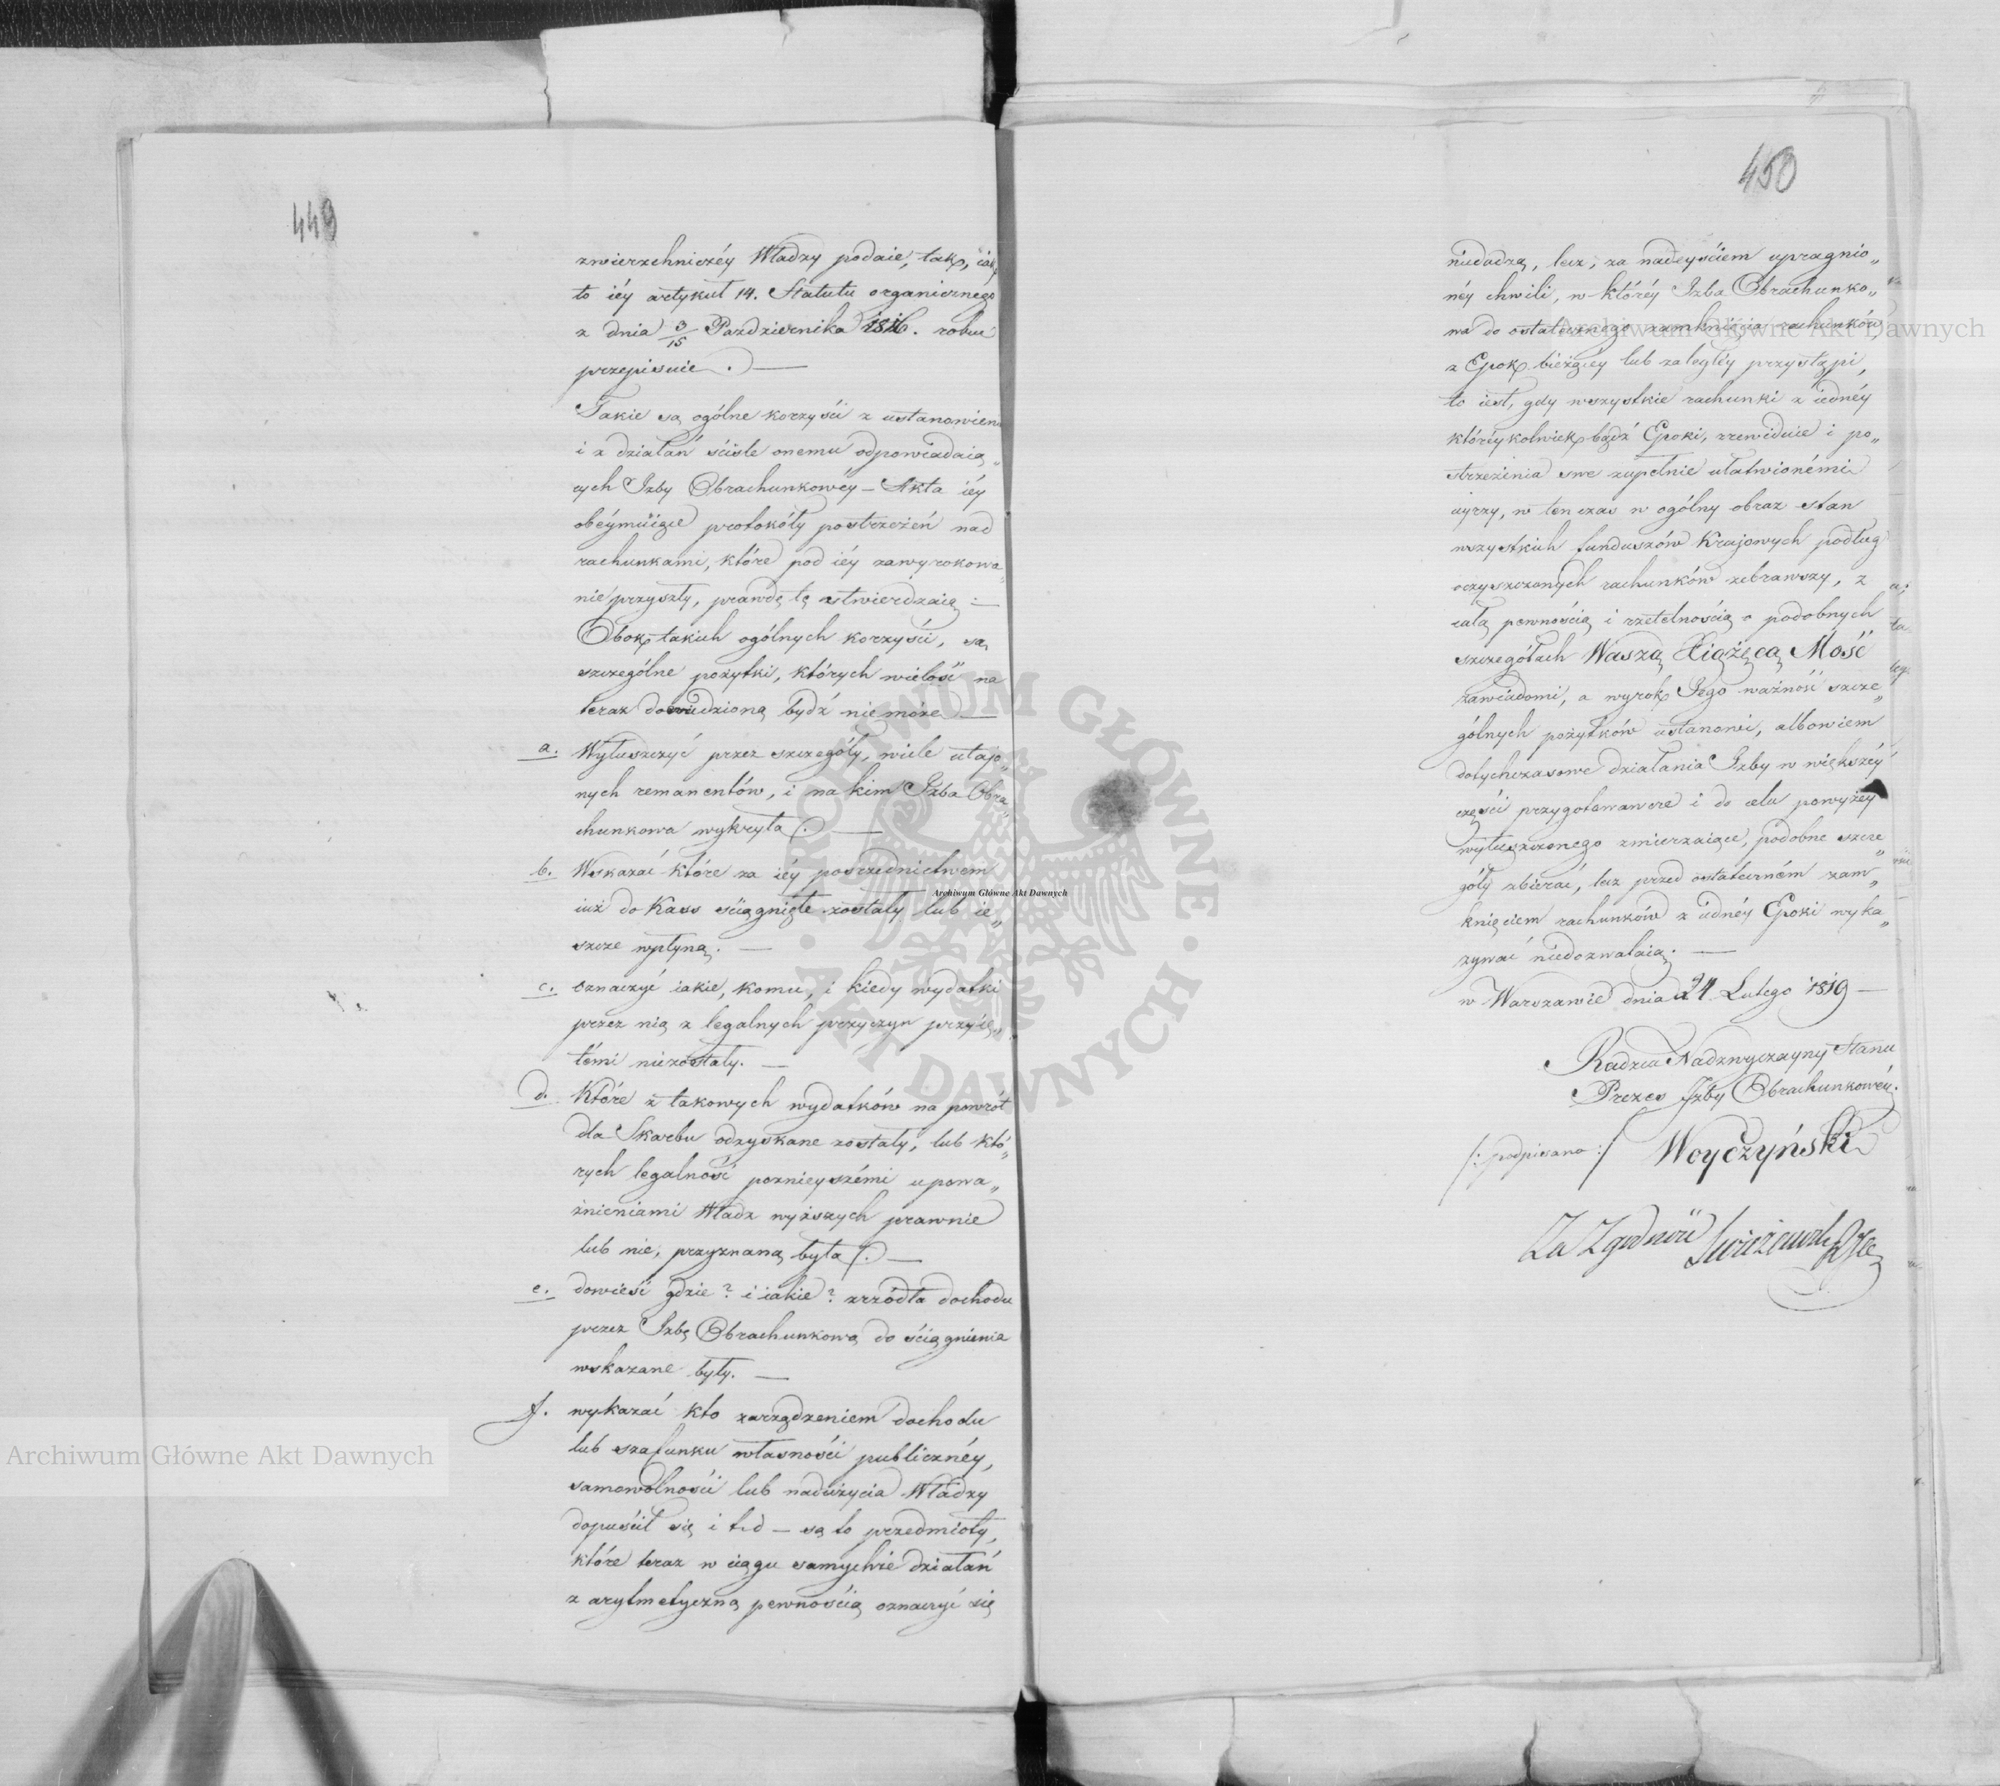 449
zwierzchniczéy Władzy podaie, tak, iak
to iéy artykuł 14. Statutu organicznego
z dnia 3/15 Pazdziernika 1816. roku
przepisuie. —
Takie są ogólne korzyści z ustanowienia
i z działań ściśle onemu odpowiadaią„
cych Izby Obrachunkowéy — Akta iéy
obéymuiące protokóły postrzeżeń nad
rachunkami, które pod iéy zawyrokowa„
nie przyszły, prawdę tę stwierdzaią —
Obok takich ogólnych korzyści, są
szczególne pożytki, których wielość na
teraz dowiedzioną bydź nie może —
a. Wyłuszczyć przez szczegóły, wiele utajo„
nych remanentów, i na kim Izba Obra„
chunkowa wykryła. —
b. Wskazać które za iéy pośrzednictwem
iuż do Kass ściągnięte zostały lub ie„
szcze wpłyną. —
c. Oznaczyć iakie, komu, i kiedy wydatki
przez nią z legalnych przyczyn przyię„
témi niezostały. —
d. Które z takowych wydatków na powrót
dla Skarbu odzyskane zostały, lub któ„
rych legalność poznieyszémi upowa„
żnieniami Władz wyższych prawnie
lub nie, przyznaną była. —
e. dowieść gdzie? i iakie? zrzódła dochodu
przez Izbę Obrachunkową do ściągnienia
wskazane były. —
f. wykazać kto zarządzeniem dochodu
lub szafunku własności publicznéy,
samowolności lub nadużycia Władzy
dopuścił się i t.d — są to przedmioty,
które teraz w ciągu samychże działań
z arytmetyczną pewnością oznaczyć się
450
niedadzą, lecz, za nadeyściem upragnio„
néy chwili, w któréy Izba Obrachunko„
wa do ostatecznego zamknięcia rachunków,
z Epok bieżącéy lub zaległéy przystąpi,
to iest, gdy wszystkie rachunki z iednéy
któréykolwiek bądź Epoki, zrewiduie i po„
strzeżenia swe zupełnie ułatwionémi
uyrzy, w ten czas w ogólny obraz stan
wszystkich funduszów Krajowych podług
oczyszczonych rachunków zebrawszy, z
całą pewnością i rzetelnością o podobnych
szczegółach Waszą Xiążęcą Mość
zawiadomi, a wyrok Jego ważność szcze„
gólnych pożytków ustanowi, albowiem
dotychczasowe działania Izby w większéy
części przygotowawcze i do celu powyżéy
wyłuszczonego zmierzaiące, podobne szcze„
góły zbierać, lecz przed ostateczném zam„
knięciem rachunków z iednéy Epoki wyka„
zywać niedozwalaią. —
w Warszawie dnia 24 Lutego 1819 —
Radzca Nadzwyczayny Stanu
Prezes Izby Obrachunkowéy.
/: podpisano :/ Woyczyński
Za Zgodność
Archiwum Główne Akt Dawnych
Archiwum Główne Akt Dawnych
Archiwum Główne Akt Dawnych
ARCHIWUM GŁÓWNE · AKT DAWNYCH ·